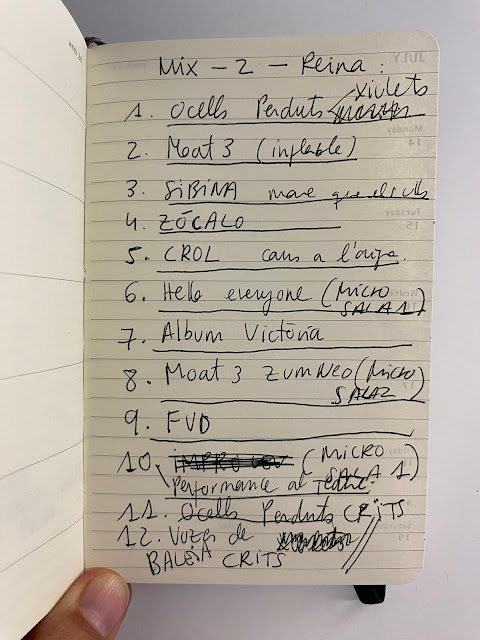 Mix - 2 - Reina :
1. Ocells Perduts xiulets
2. Moat 3 (inflable)
3. SIBINA mare que els ulls
4. ZÓCALO
5. CROL cans a l'
6. Hello everyone (MICRO
SALA 1)
7. Album Victòria
8. Moat 3 ZUM NEO (MICRO
SALA 2
9. FUD
10. (MICRO
SALA 1)
Performance al
11. Ocells Perduts CRITS
12. Vozes de
BALEIA CRITS
JULY
Monday
14
Tuesday
15
19